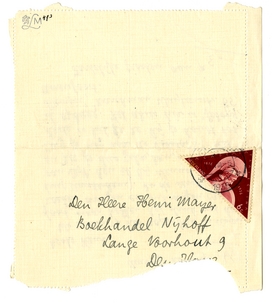 Den Heere Henri Mayer
Boekhandel Nijhoff
Lange Voorhout 9
Den Haag